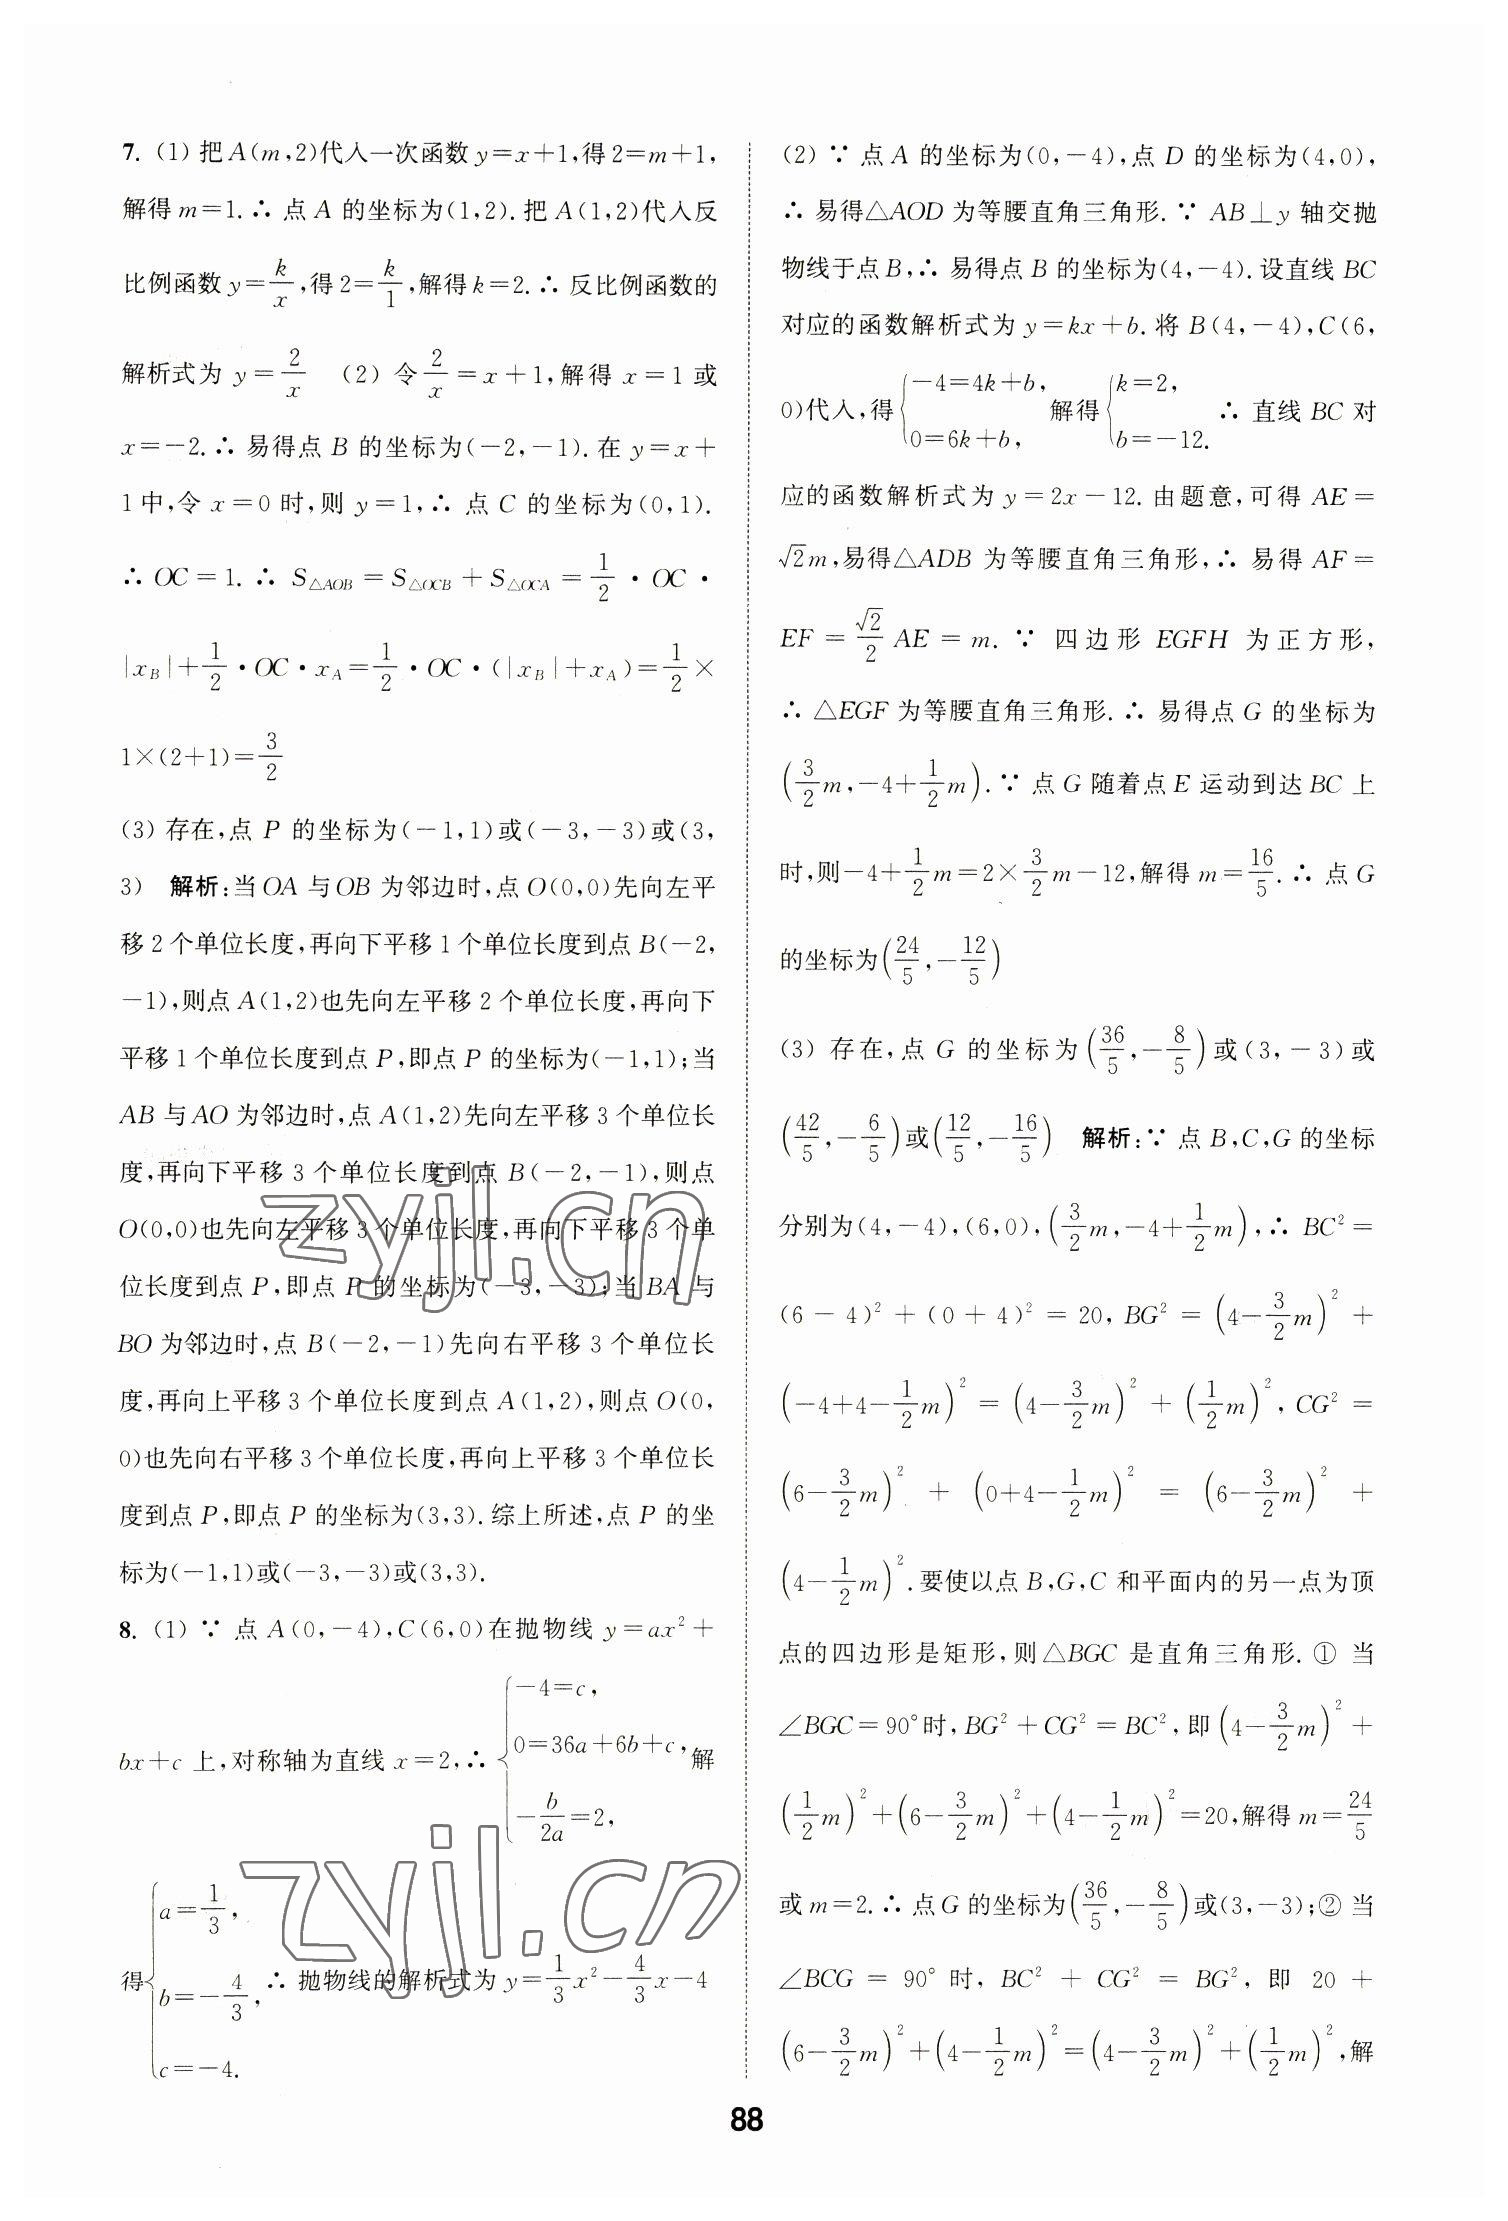 7. (1) 把A(m,2)代入一次函数y=x+1,得2=m+1,
解得m=1.∴ 点A的坐标为(1,2).把A(1,2)代入反
比例函数y=k/x,得2=k/1,解得k=2.∴ 反比例函数的
解析式为y=2/x (2) 令2/x=x+1,解得x=1或
x=-2.∴ 易得点B的坐标为(-2,-1).在y=x+
1中,令x=0时,则y=1,∴ 点C的坐标为(0,1).
∴ OC=1.∴ S△AOB=S△OCB+S△OCA=1/2·OC·
|x_B|+1/2·OC·x_A=1/2·OC·(|x_B|+x_A)=1/2×
1×(2+1)=3/2
(3) 存在,点P的坐标为(-1,1)或(-3,-3)或(3,
3) 解析:当OA与OB为邻边时,点O(0,0)先向左平
移2个单位长度,再向下平移1个单位长度到点B(-2,
-1),则点A(1,2)也先向左平移2个单位长度,再向下
平移1个单位长度到点P,即点P的坐标为(-1,1);当
AB与AO为邻边时,点A(1,2)先向左平移3个单位长
度,再向下平移3个单位长度到点B(-2,-1),则点
O(0,0)也先向左平移3个单位长度,再向下平移3个单
位长度到点P,即点P的坐标为(-3,-3);当BA与
BO为邻边时,点B(-2,-1)先向右平移3个单位长
度,再向上平移3个单位长度到点A(1,2),则点O(0,
0)也先向右平移3个单位长度,再向上平移3个单位长
度到点P,即点P的坐标为(3,3).综上所述,点P的坐
标为(-1,1)或(-3,-3)或(3,3).
8. (1) ∵ 点A(0,-4),C(6,0)在抛物线y=ax²+
bx+c上,对称轴为直线x=2,∴ {-4=c, 0=36a+6b+c, -b/2a=2, 解
得{a=1/3, b=-4/3, c=-4. ∴ 抛物线的解析式为y=1/3x²-4/3x-4
(2) ∵ 点A的坐标为(0,-4),点D的坐标为(4,0),
∴ 易得△AOD为等腰直角三角形.∵ AB⊥y轴交抛
物线于点B,∴ 易得点B的坐标为(4,-4).设直线BC
对应的函数解析式为y=kx+b.将B(4,-4),C(6,
0)代入,得{-4=4k+b, 0=6k+b, 解得{k=2, b=-12. ∴ 直线BC对
应的函数解析式为y=2x-12.由题意,可得AE=
√2m,易得△ADB为等腰直角三角形,∴ 易得AF=
EF=√2/2AE=m.∵ 四边形EGFH为正方形,
∴ △EGF为等腰直角三角形.∴ 易得点G的坐标为
(3/2m,-4+1/2m).∵ 点G随着点E运动到达BC上
时,则-4+1/2m=2×3/2m-12,解得m=16/5.∴ 点G
的坐标为(24/5,-12/5)
(3) 存在,点G的坐标为(36/5,-8/5)或(3,-3)或
(42/5,-6/5)或(12/5,-16/5) 解析:∵ 点B,C,G的坐标
分别为(4,-4),(6,0),(3/2m,-4+1/2m),∴ BC²=
(6-4)²+(0+4)²=20,BG²=(4-3/2m)²+
(-4+4-1/2m)²=(4-3/2m)²+(1/2m)²,CG²=
(6-3/2m)²+(0+4-1/2m)²=(6-3/2m)²+
(4-1/2m)².要使以点B,G,C和平面内的另一点为顶
点的四边形是矩形,则△BGC是直角三角形.① 当
∠BGC=90°时,BG²+CG²=BC²,即(4-3/2m)²+
(1/2m)²+(6-3/2m)²+(4-1/2m)²=20,解得m=24/5
或m=2.∴ 点G的坐标为(36/5,-8/5)或(3,-3);② 当
∠BCG=90°时,BC²+CG²=BG²,即20+
(6-3/2m)²+(4-1/2m)²=(4-3/2m)²+(1/2m)²,解
88
zyjl.cn
zyjl.cn